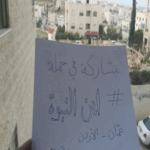 مشاركة في حملة
# لافتات النبوة
عمّان - الأردن